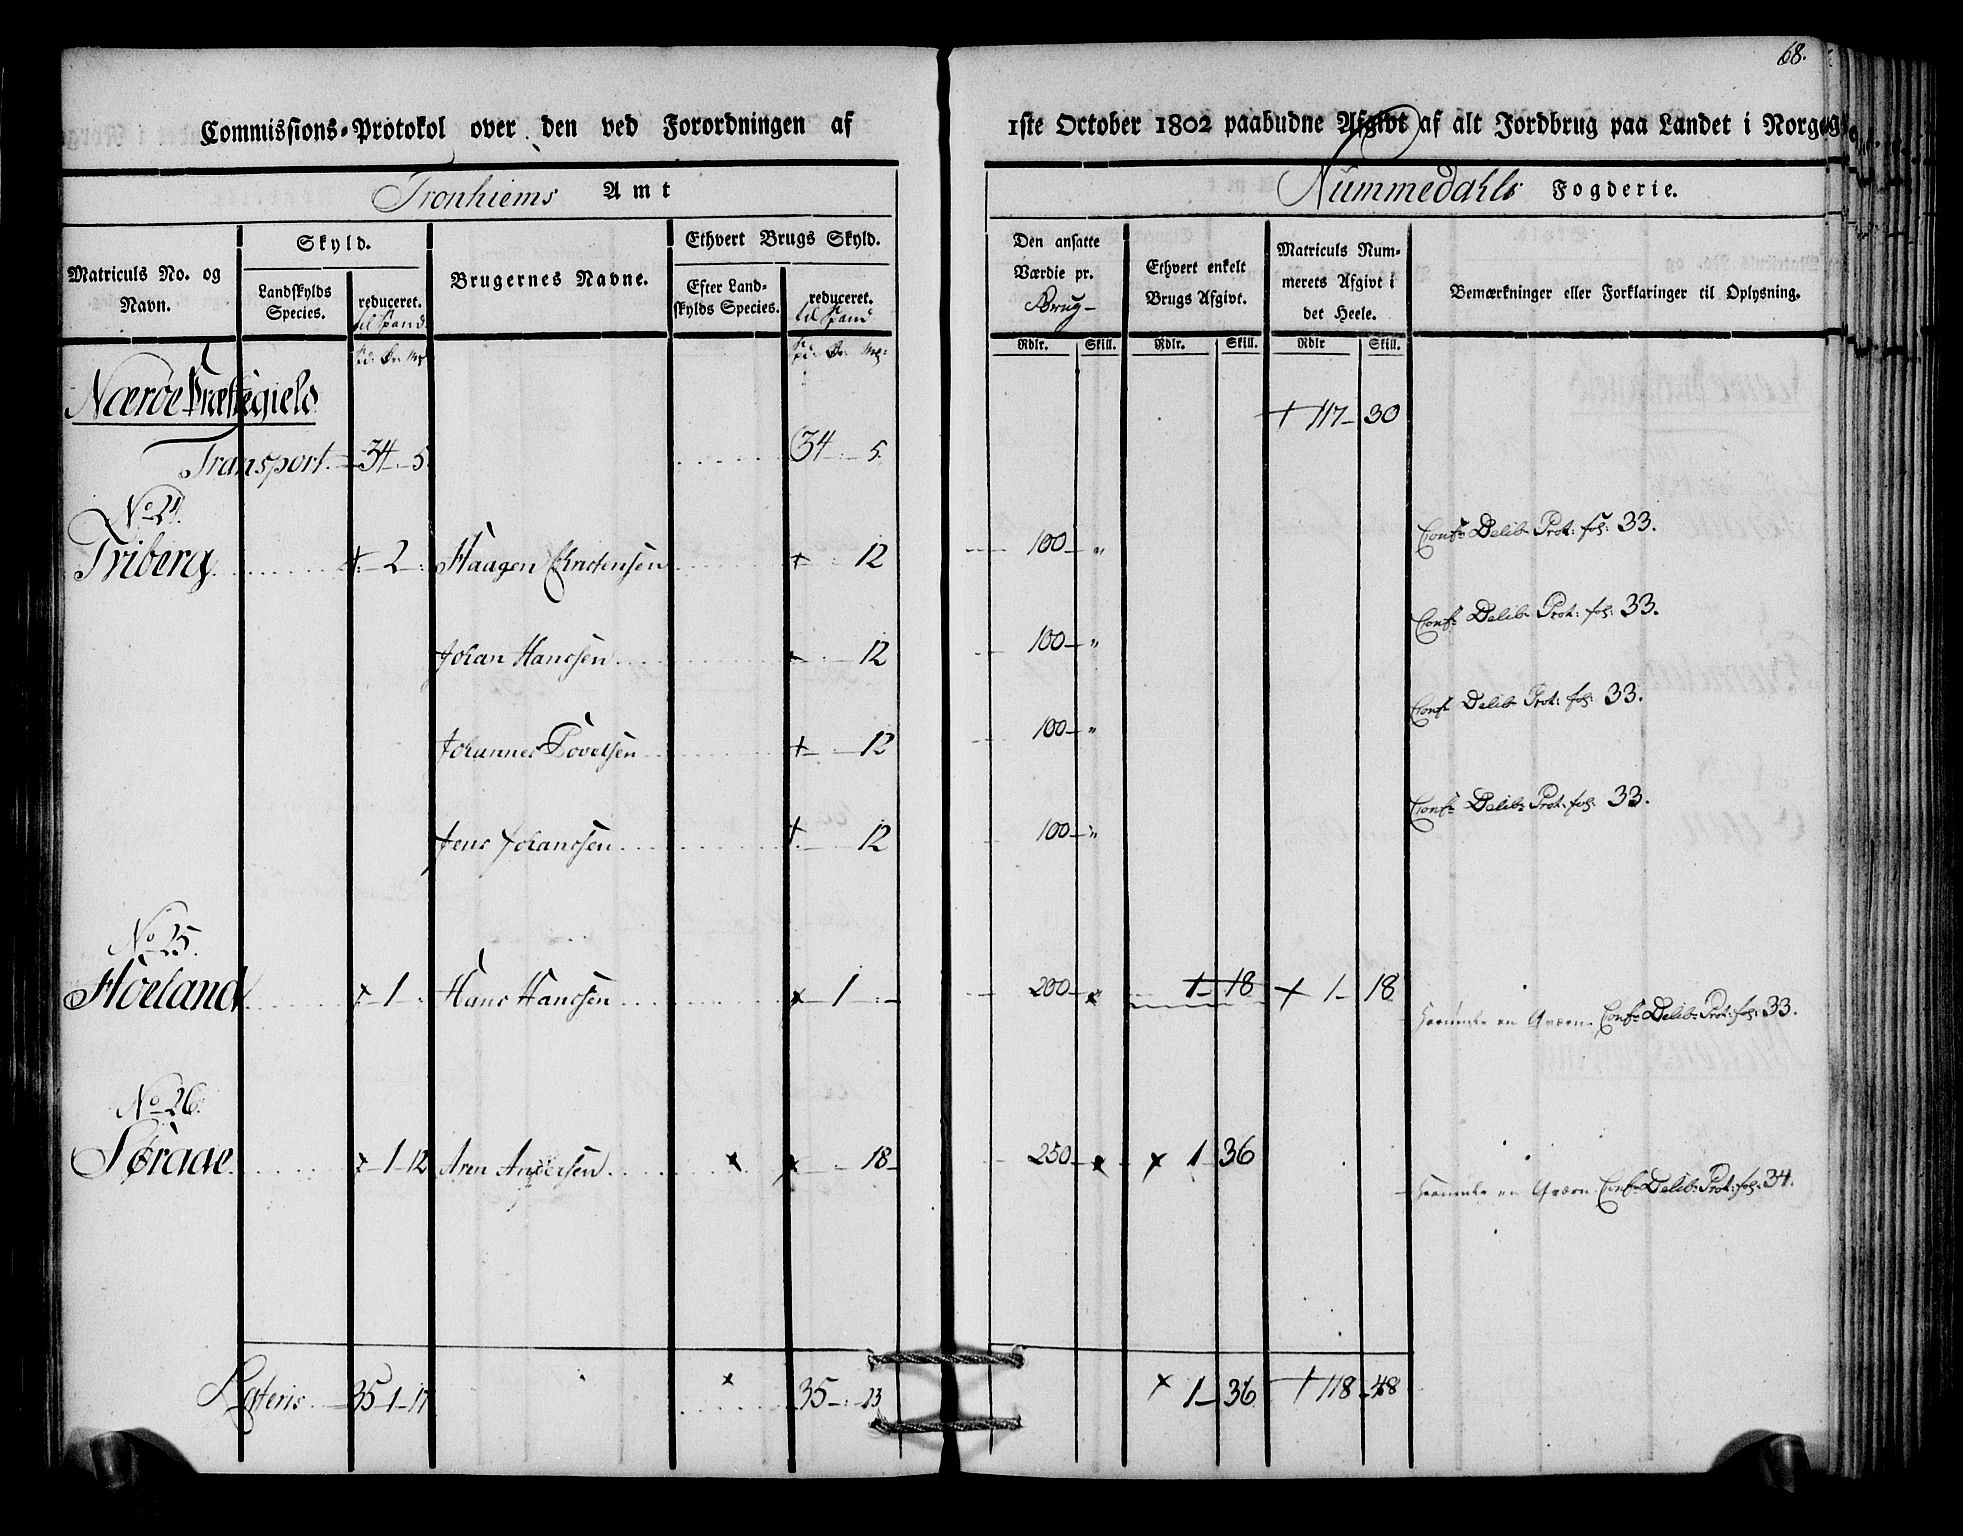 68.
Commissions-Protokol over den ved Forordningen af 1ste October 1802 paabudne Afgivt af alt Jordbrug paa Landet i Norge
Tronhiems Amt
Nummedahls Fogderie.
Matriculs No. og Navn.
Skyld.
Landskylds Species.
reduceret. til Spand
Brugernes Navne.
Ethvert Brugs Skyld.
Efter Landskylds Species.
reduceret. til Spand
Den ansatte Værdie pr. Brug
Ethvert enkelt Brugs Afgivt.
Matriculs Nummerets Afgivt i det Heele.
Bemærkninger eller Forklaringer til Oplysning.
Rdlr. Skill. Rdlr. Skill. Rdlr Skill.
Nærøe Præstegield
+ 117 - 30
Transport. 34 - 5 34 - 5.
No 24.
Triberg + 2 Haagen Christensen + 12 100 - " Conf: Delib: Prot: fol: 33.
Johan Hanssen 12 100 - " Conf: Delib: Prot: fol: 33.
Johannes Povelsen + 12 100 - " Conf: Delib: Prot: fol: 33.
Jens Johanssen + 12 100 - " Conf: Delib: Prot: fol: 33.
No 25.
Høeland x 1 Hans Hanssen x 1 200 - x 1 - 18 + 1 - 18 en Qværn. Conf: Delib: Prot: fol: 33.
No 26.
Søraae x 1 - 12 Aren Andersen x x 18 250 - x x 1 - 36 en Qværn Conf: Delib: Prot: fol: 34.
Lateris 35 - 1 - 17 x 35 - 23 x 1 - 36 + 118 - 48